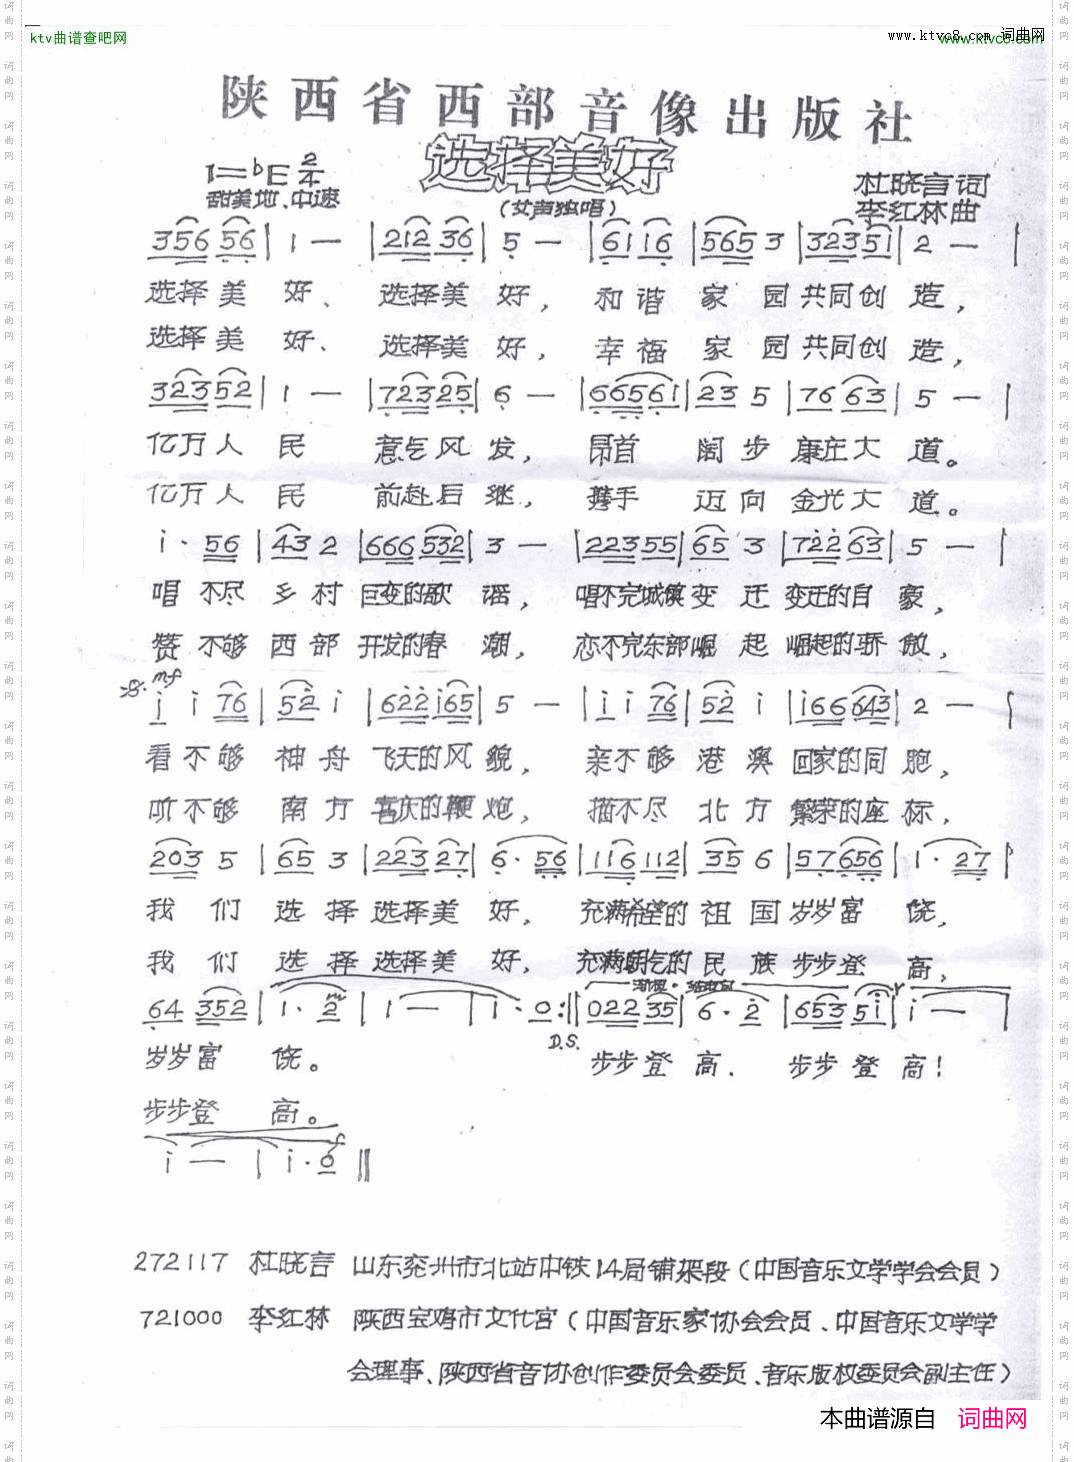 ktv曲谱查吧网
www.ktvc8.com 词曲网
陕西省西部音像出版社
选择美好
1=bE 2/4
甜美地、中速
（女声独唱）
杜晓言词
李红林曲
356 56 | 1 — | 212 36 | 5 — | 61 16 | 565 3 | 323 51 | 2 — |
选择美 好、 选择美 好， 和谐 家 园 共同创 造，
选择美 好、 选择美 好， 幸福 家 园 共同创 造，
323 52 | 1 — | 723 25 | 6 — | 66561 | 23 5 | 76 63 | 5 — |
亿万人 民 意气风 发， 昂首 阔 步 康庄大 道。
亿万人 民 前赴后 继， 携手 迈 向 金光大 道。
i· 56 | 43 2 | 666 532 | 3 — | 223 55 | 65 3 | 722 63 | 5 — |
唱 不尽 乡 村 巨变的歌 谣， 唱不完城镇 变 迁 变迁的自 豪，
赞 不够 西 部 开发的春 潮， 恋不完东部 崛 起 崛起的骄 傲，
mf
i i 76 | 52 i | 622 i65 | 5 — | i i 76 | 52 i | i66 643 | 2 — |
看 不够 神 舟 飞天的风 貌， 亲不够 港 澳 回家的同 胞，
听 不够 南 方 喜庆的鞭 炮， 描不尽 北 方 繁荣的座 标，
203 5 | 65 3 | 223 27 | 6· 56 | 116 112 | 35 6 | 57656 | 1· 27 |
我 们 选 择 选择美 好， 充满希望的 祖 国 岁岁富 饶，
我 们 选 择 选择美 好， 充满朝气的 民 族 步步登 高，
64 352 | 1· 2 | 1 — | 1· 0 :|| 022 35 | 6· 2 | 653 5i | i — |
D.S.
岁岁富 饶。 步步登 高． 步步登 高！
步步登 高。
i — | i· 0 ||
272117 杜晓言 山东兖州市北站中铁14局铺架段（中国音乐文学学会会员）
721000 李红林 陕西宝鸡市文化宫（中国音乐家协会会员、中国音乐文学学
会理事、陕西省音协创作委员会委员、音乐版权委员会副主任）
本曲谱源自 词曲网